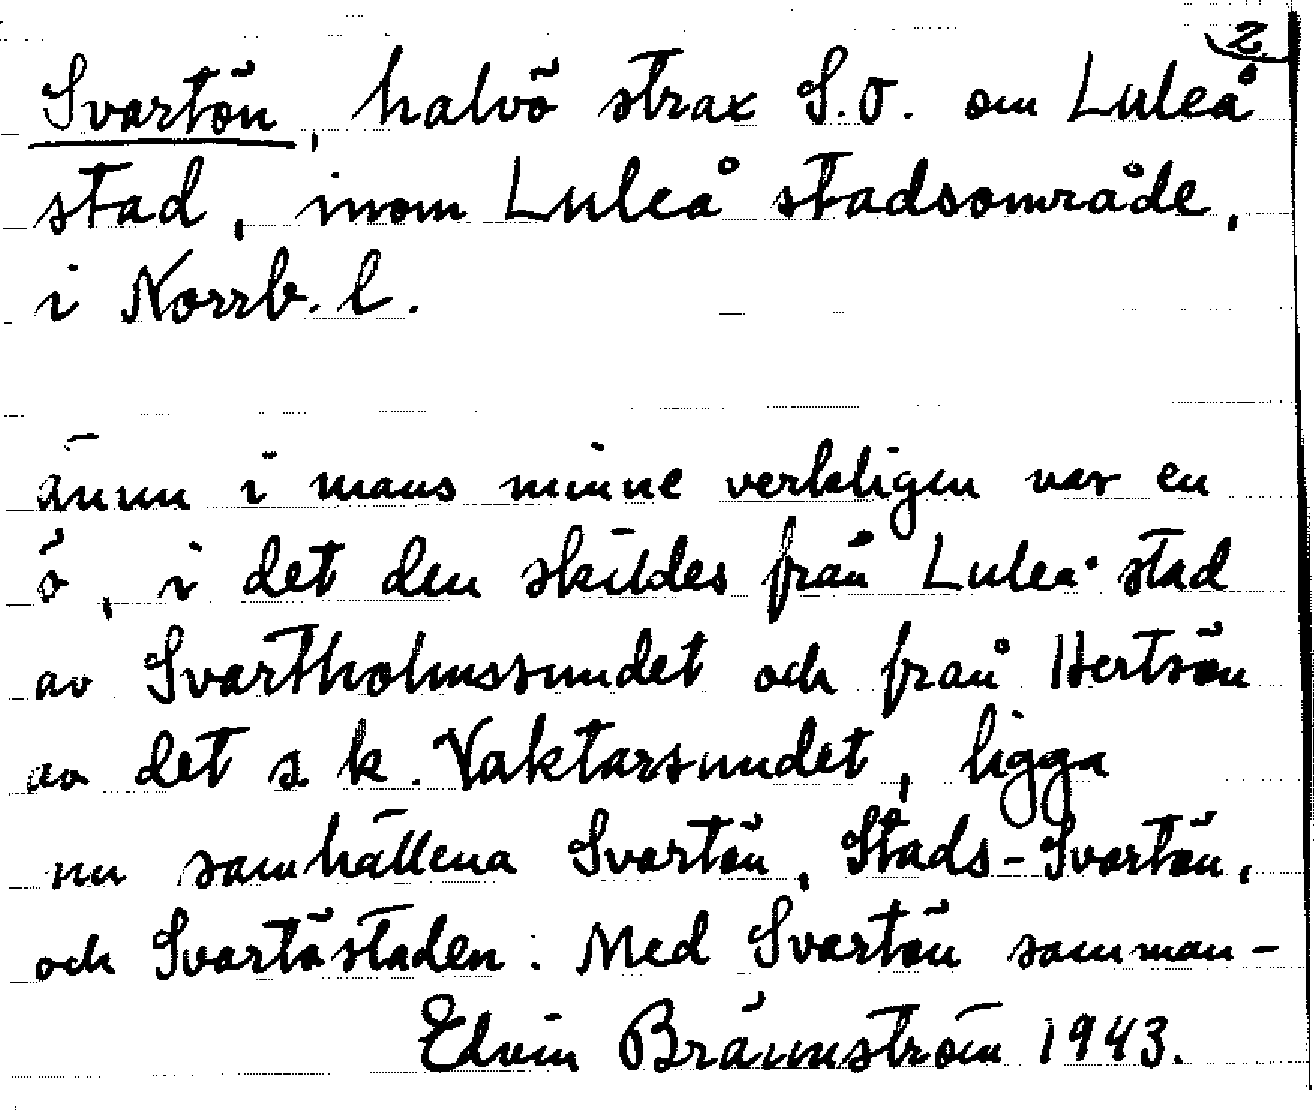 2
Svartön, halvö strax S.O. om Luleå
stad, inom Luleå stadsområde,
i Norrb. l.
ännu i mans minne verkligen var en
ö, i det den skildes från Luleå stad
av Svartholmssundet och från Hertsön
av det s k. Vaktarsundet, ligga
nu samhällena Svartön, Stads-Svartön,
och Svartöstaden. Med Svartön samman-
Edvin Brännström 1943.